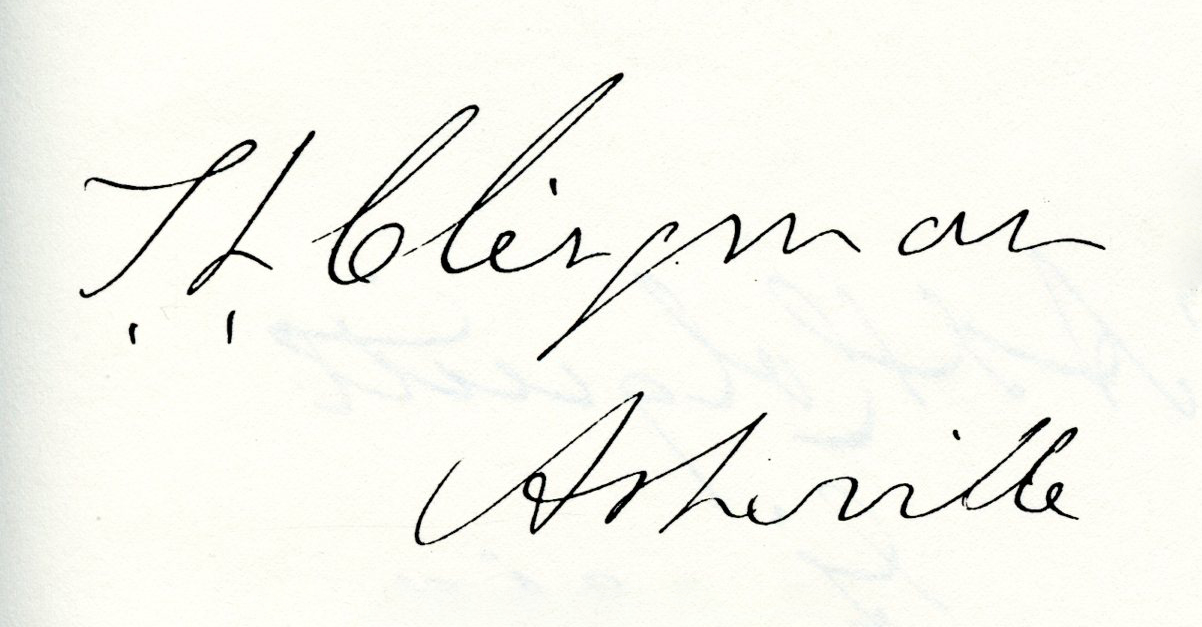 T. L. Clingman
Asheville